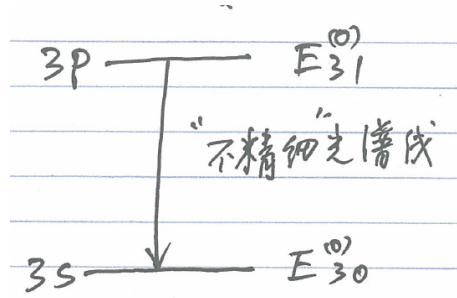 3p E₃₁⁽⁰⁾
"不精细"光谱线
3s E₃₀⁽⁰⁾